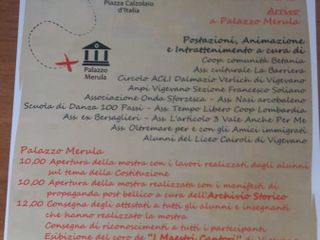 Piazza Calzolaio
d'Italia
Arrivo
a Palazzo Merula
Palazzo
Merula
Postazioni, Animazione
e Intrattenimento a cura di
Coop comunità Betania
Ass. culturale La Barriera
Circolo ACLI Dalmazio Verlich di Vigevano
Anpi Vigevano Sezione Francesco Soliano
Associazione Onda Sforzesca - Ass. Nasi arcobaleno
Scuola di Danza 100 Passi - Ass. Tempo Libero Coop Lombardia
Ass. ex Bersaglieri - Ass. L'articolo 3 Vale Anche Per Me
Ass. Oltremare per e con gli Amici immigrati
Alunni del Liceo Cairoli di Vigevano
Palazzo Merula
10,00 Apertura della mostra con i lavori realizzati dagli alunni
sul tema della Costituzione
10,00 Apertura della mostra realizzata con i manifesti di
propaganda post bellico a cura dell'Archivio Storico
12,00 Consegna degli attestati a tutti gli alunni e insegnanti
che hanno realizzato la mostra
Consegna di riconoscimenti a tutti i partecipanti
Esibizione del coro de "I Maestri Cantori"